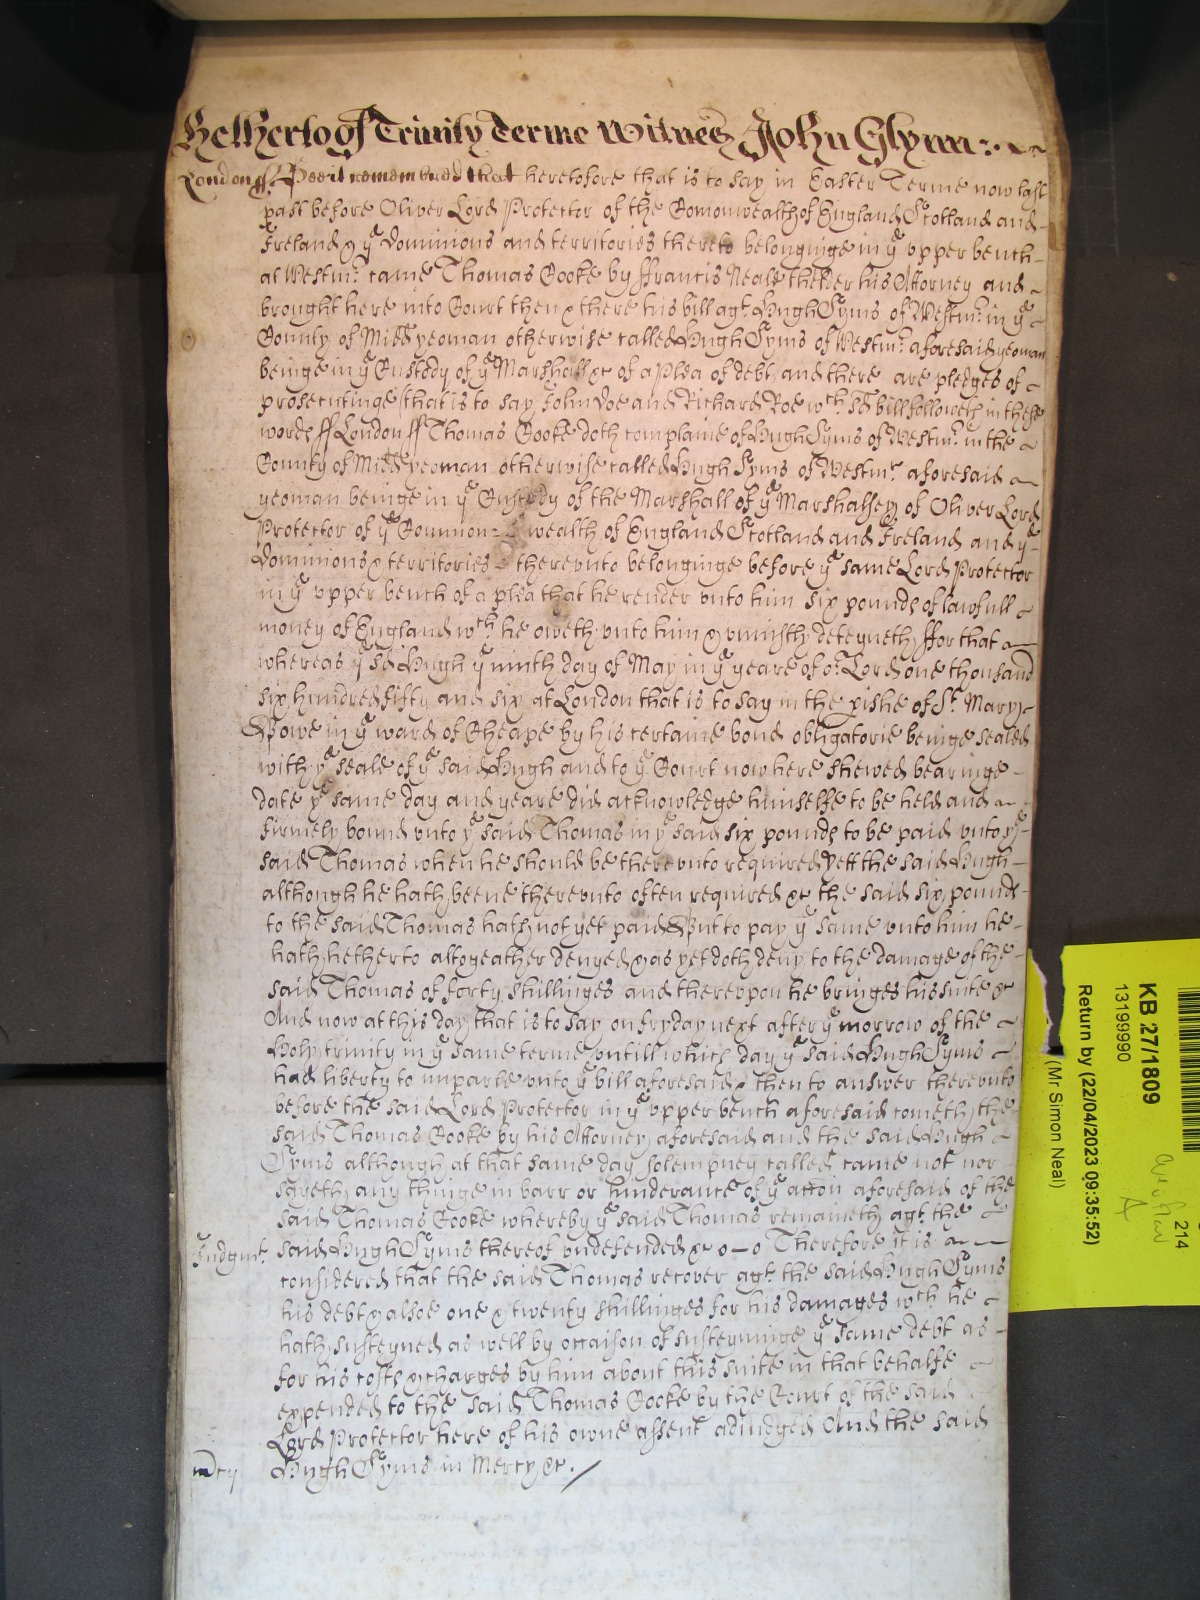 Hetherto of Trinity Terme Witnes John Glynn:
London ss Bee it remembred that heretofore that is to say in Easter Terme now last
past before Oliver Lord Protector of the Comonwealth of England Scotland and
Ireland & ye dominions and territories thereto belonginge in ye upper bench
at Westmr came Thomas Cooke by ffrancis Neale thelder his Attorney and
brought here into Court then & there his bill agt Hugh Syms of Westmr in ye
County of Midd yeoman otherwise called Hugh Syms of Westmr aforesaid yeoman
beinge in ye Custody of ye Marshall &c of a plea of debt and there are pledges of
prosecutinge (that is to say John Doe and Richard Roe wch sd bill followeth in these
words ss London ss Thomas Cooke doth complaine of Hugh Syms of Westmr in the
County of Midd yeoman otherwise called Hugh Syms of Westmr aforesaid
yeoman beinge in ye Custody of the Marshall of ye Marshalsey of Oliver Lord
Protector of ye Common= wealth of England Scotland and Ireland and ye
dominions & territories thereunto belonginge before ye same Lord Protector
in ye upper bench of a plea that he render unto him six pounds of lawfull
money of England wch he oweth unto him & uniustly deteyneth ffor that
whereas ye sd Hugh ye ninth day of May in ye yeare of or Lord one thousand
six hundred fifty and six at London that is to say in the pishe of St Mary
Bowe in ye ward of Cheape by his certaine bond obligatorie beinge sealed
with ye seale of ye said Hugh and to ye Court now here shewed bearinge
date ye same day and yeare did acknowledge himselfe to be held and
firmely bound unto ye said Thomas in ye said six pounds to be paid unto ye
said Thomas when he should be thereunto required Yett the said Hugh
although he hath beene thereunto often required &c the said six pounds
to the said Thomas hath not yet paid But to pay ye same unto him he
hath hetherto altogeather denyed & as yet doth deny to the damage of the
said Thomas of forty shillinges and thereupon he bringes his suite &c
And now at this day that is to say on fryday next after ye morrow of the
Holy trinity in ye same terme untill which day ye said Hugh Syms
had liberty to imparle unto ye bill aforesaid & then to answer thereunto
before the said Lord Protector in ye upper bench aforesaid cometh the
said Thomas Cooke by his Attorney aforesaid and the said Hugh
Syms although at that same day solempney called came not nor
sayeth any thinge in barr or hinderance of ye accon aforesaid of the
said Thomas Cooke whereby ye said Thomas remaineth agt the
Judgmt said Hugh Syms thereof undefended &c Therefore it is
considered that the said Thomas recover agt the said Hugh Syms
his debt & alsoe one & twenty shillinges for his damages wch he
hath susteyned as well by occaison of susteyninge ye same debt as
for his costs & charges by him about this suite in that behalfe
expended to the said Thomas Cooke by the Court of the said
Lord Protector here of his owne assent adiudged And the said
mcy Hugh Syms in Mercy &c.
KB 27/1809
13199990
Return by (22/04/2023 09:35:52)
(Mr Simon Neal)
214